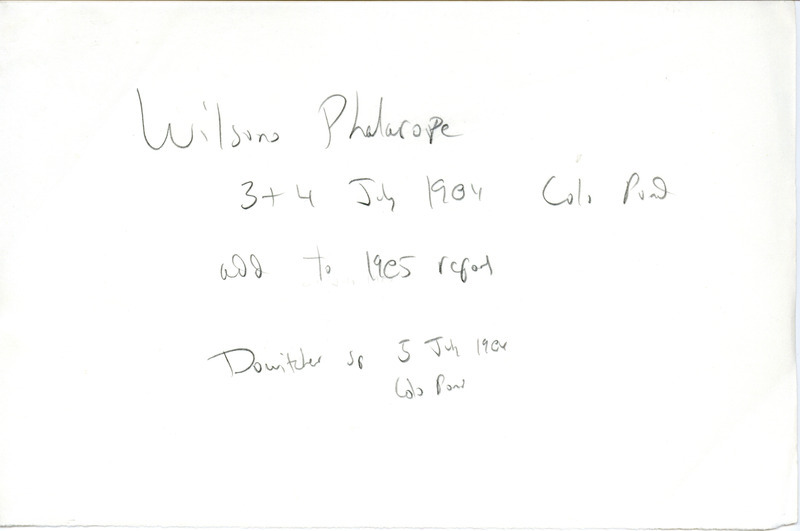 Wilsons Phalarope
3+4 July 1984 Colo Pond
add to 1985 report
Dowitcher sp 5 July 1984
Colo Pond